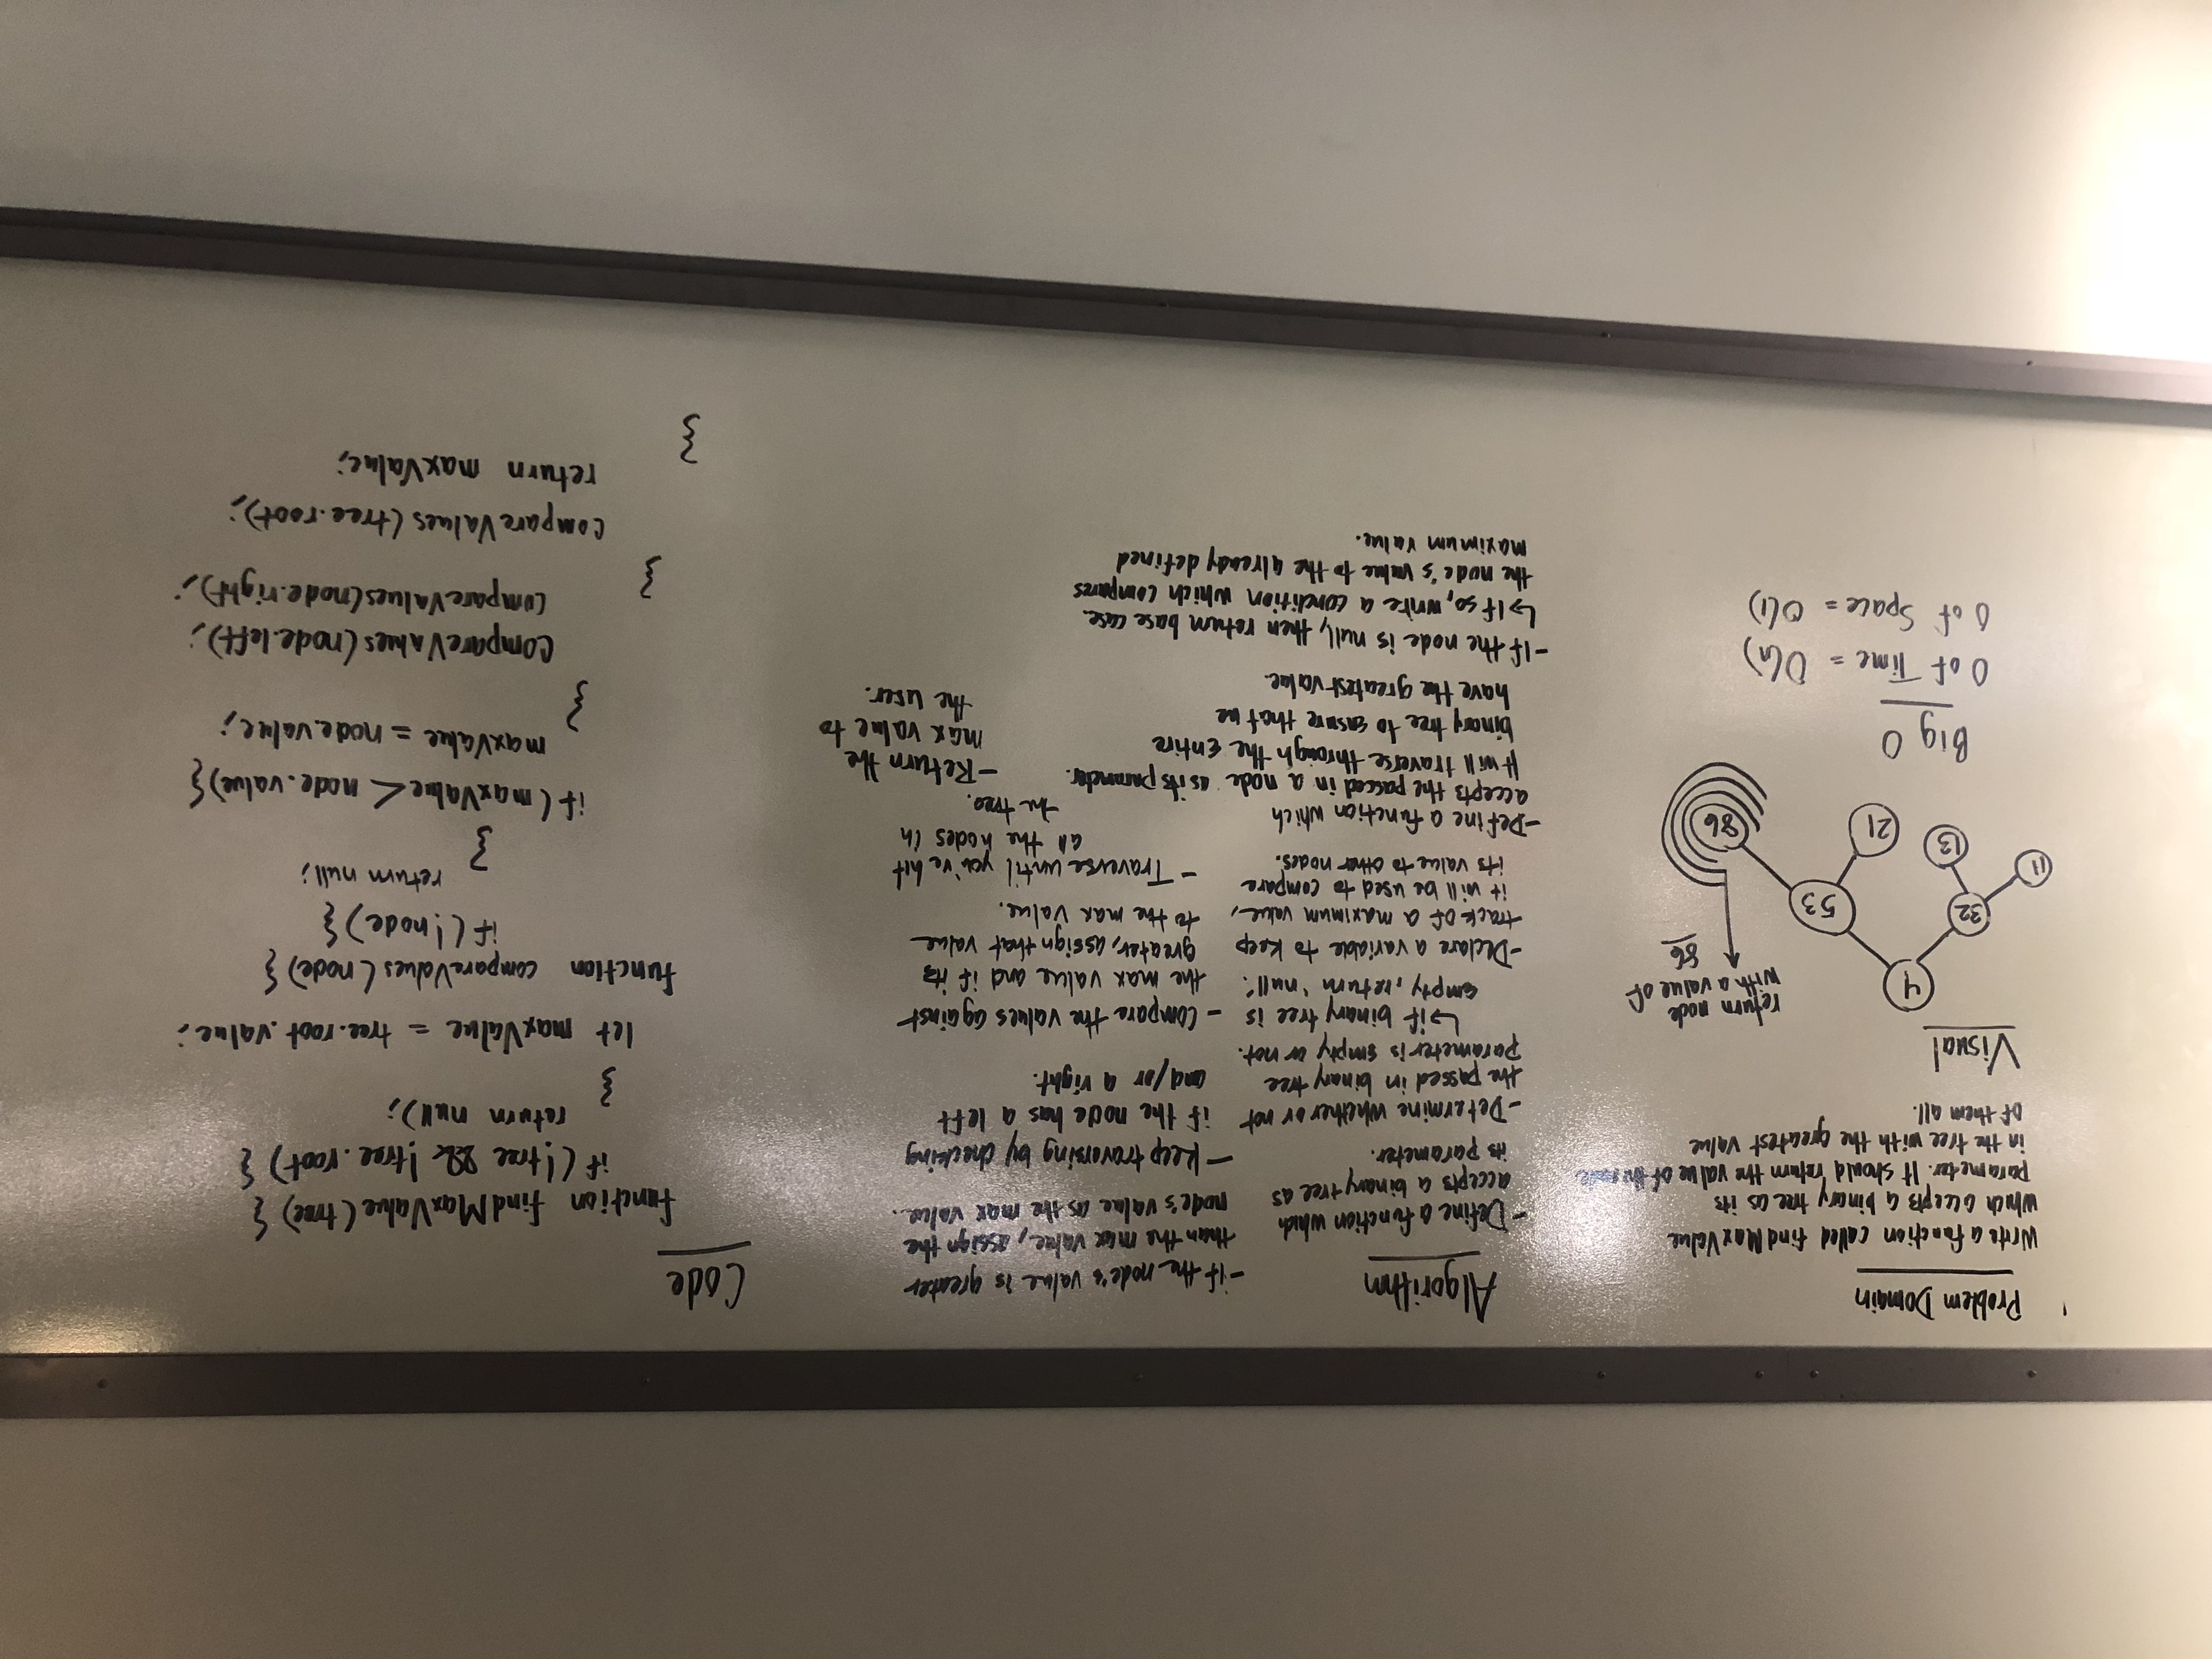 Problem Domain
Write a function called findMaxValue
which accepts a binary tree as its
parameter. It should return the value of the node
in the tree with the greatest value
of them all.
Visual
4
32
53
11
13
21
86
return node
with a value of
86
Big O
O of Time = O(n)
O of Space = O(1)
Algorithm
- Define a function which
accepts a binary tree as
its parameter.
- Determine whether or not
the passed in binary tree
parameter is empty or not.
↳ if binary tree is
empty, return 'null'.
- Declare a variable to keep
track of a maximum value,
it will be used to compare
its value to other nodes.
- Define a function which
accepts the passed in a node as its parameter.
It will traverse through the entire
binary tree to ensure that we
have the greatest value.
- If the node is null, then return base case.
↳ If so, write a condition which compares
the node's value to the already defined
maximum value.
- if the node's value is greater
than the max value, assign the
node's value as the max value.
- Keep traversing by checking
if the node has a left
and/or a right.
- Compare the values against
the max value and if its
greater, assign that value
to the max value.
- Traverse until you've hit
all the nodes in
the tree.
- Return the
max value to
the user.
Code
function findMaxValue(tree) {
if (!tree && !tree.root) {
return null);
}
let maxValue = tree.root.value;
function compareValues(node) {
if (!node) {
return null;
}
if (maxValue < node.value) {
maxValue = node.value;
}
compareValues(node.left);
compareValues(node.right);
}
compareValues(tree.root);
return maxValue;
}